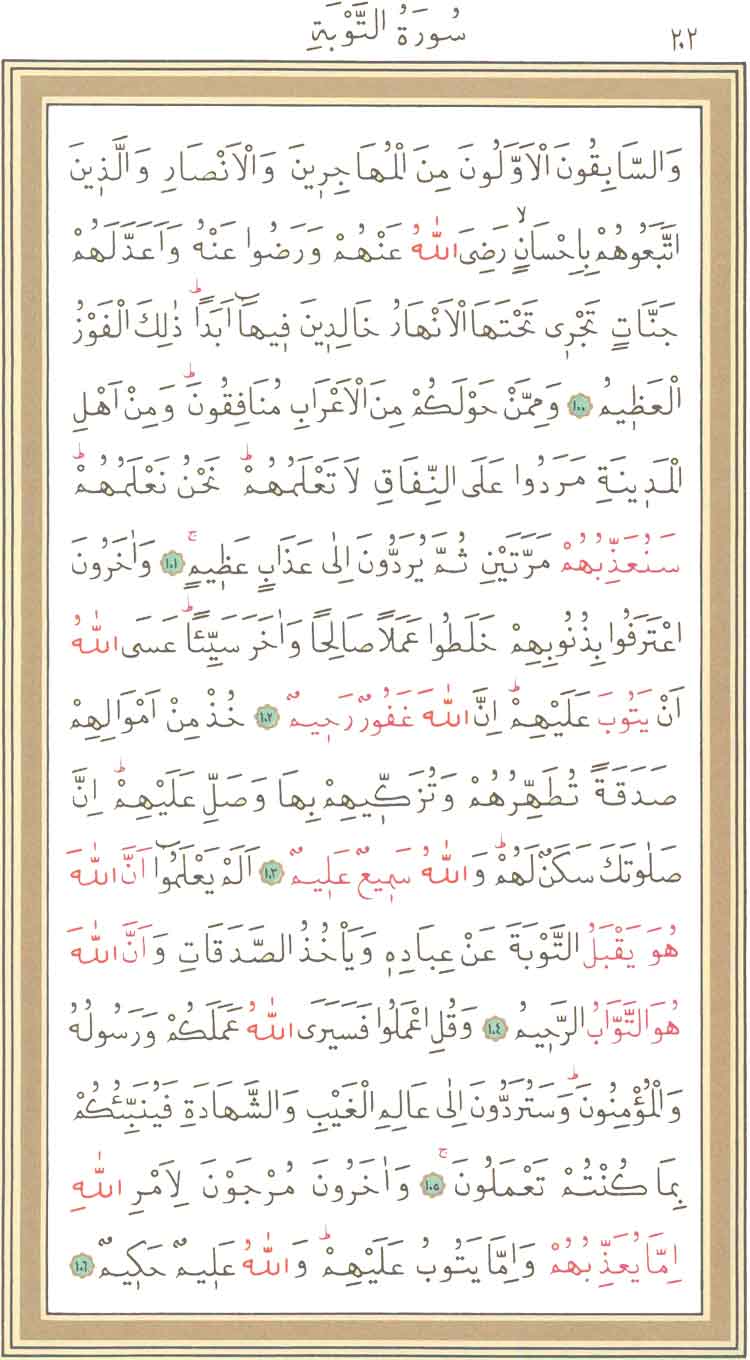 سُورَةُ التَّوْبَةِ ٢٠٢
وَالسَّابِقُونَ الْاَوَّلُونَ مِنَ الْمُهَاجِر۪ينَ وَالْاَنْصَارِ وَالَّذ۪ينَ
اتَّبَعُوهُمْ بِاِحْسَانٍۙ رَضِيَ اللّٰهُ عَنْهُمْ وَرَضُوا عَنْهُ وَاَعَدَّ لَهُمْ
جَنَّاتٍ تَجْر۪ي تَحْتَهَا الْاَنْهَارُ خَالِد۪ينَ ف۪يهَٓا اَبَدًاۜ ذٰلِكَ الْفَوْزُ
الْعَظ۪يمُ ﴿١٠٠﴾ وَمِمَّنْ حَوْلَكُمْ مِنَ الْاَعْرَابِ مُنَافِقُونَۜ وَمِنْ اَهْلِ
الْمَد۪ينَةِ مَرَدُوا عَلَى النِّفَاقِ لَا تَعْلَمُهُمْۜ نَحْنُ نَعْلَمُهُمْۜ
سَنُعَذِّبُهُمْ مَرَّتَيْنِ ثُمَّ يُرَدُّونَ اِلٰى عَذَابٍ عَظ۪يمٍۚ ﴿١٠١﴾ وَاٰخَرُونَ
اعْتَرَفُوا بِذُنُوبِهِمْ خَلَطُوا عَمَلًا صَالِحًا وَاٰخَرَ سَيِّئًاۜ عَسَى اللّٰهُ
اَنْ يَتُوبَ عَلَيْهِمْۜ اِنَّ اللّٰهَ غَفُورٌ رَح۪يمٌ ﴿١٠٢﴾ خُذْ مِنْ اَمْوَالِهِمْ
صَدَقَةً تُطَهِّرُهُمْ وَتُزَكّ۪يهِمْ بِهَا وَصَلِّ عَلَيْهِمْۜ اِنَّ
صَلٰوتَكَ سَكَنٌ لَهُمْۜ وَاللّٰهُ سَم۪يعٌ عَل۪يمٌ ﴿١٠٣﴾ اَلَمْ يَعْلَمُٓوا اَنَّ اللّٰهَ
هُوَ يَقْبَلُ التَّوْبَةَ عَنْ عِبَادِه۪ وَيَأْخُذُ الصَّدَقَاتِ وَاَنَّ اللّٰهَ
هُوَ التَّوَّابُ الرَّح۪يمُ ﴿١٠٤﴾ وَقُلِ اعْمَلُوا فَسَيَرَى اللّٰهُ عَمَلَكُمْ وَرَسُولُهُ
وَالْمُؤْمِنُونَۜ وَسَتُرَدُّونَ اِلٰى عَالِمِ الْغَيْبِ وَالشَّهَادَةِ فَيُنَبِّئُكُمْ
بِمَا كُنْتُمْ تَعْمَلُونَۚ ﴿١٠٥﴾ وَاٰخَرُونَ مُرْجَوْنَ لِاَمْرِ اللّٰهِ
اِمَّا يُعَذِّبُهُمْ وَاِمَّا يَتُوبُ عَلَيْهِمْۜ وَاللّٰهُ عَل۪يمٌ حَك۪يمٌ ﴿١٠٦﴾